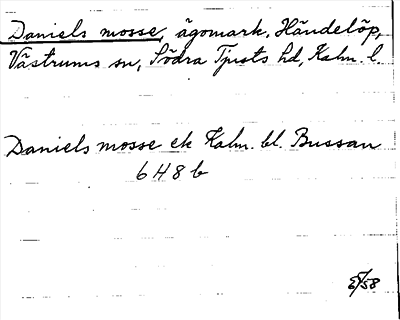 Daniels mosse, ägomark, Händelöp,
Västrums sn, Södra Tjusts hd, Kalm. l.
Daniels mosse ek Kalm. bl. Bussan
6 H 8 b